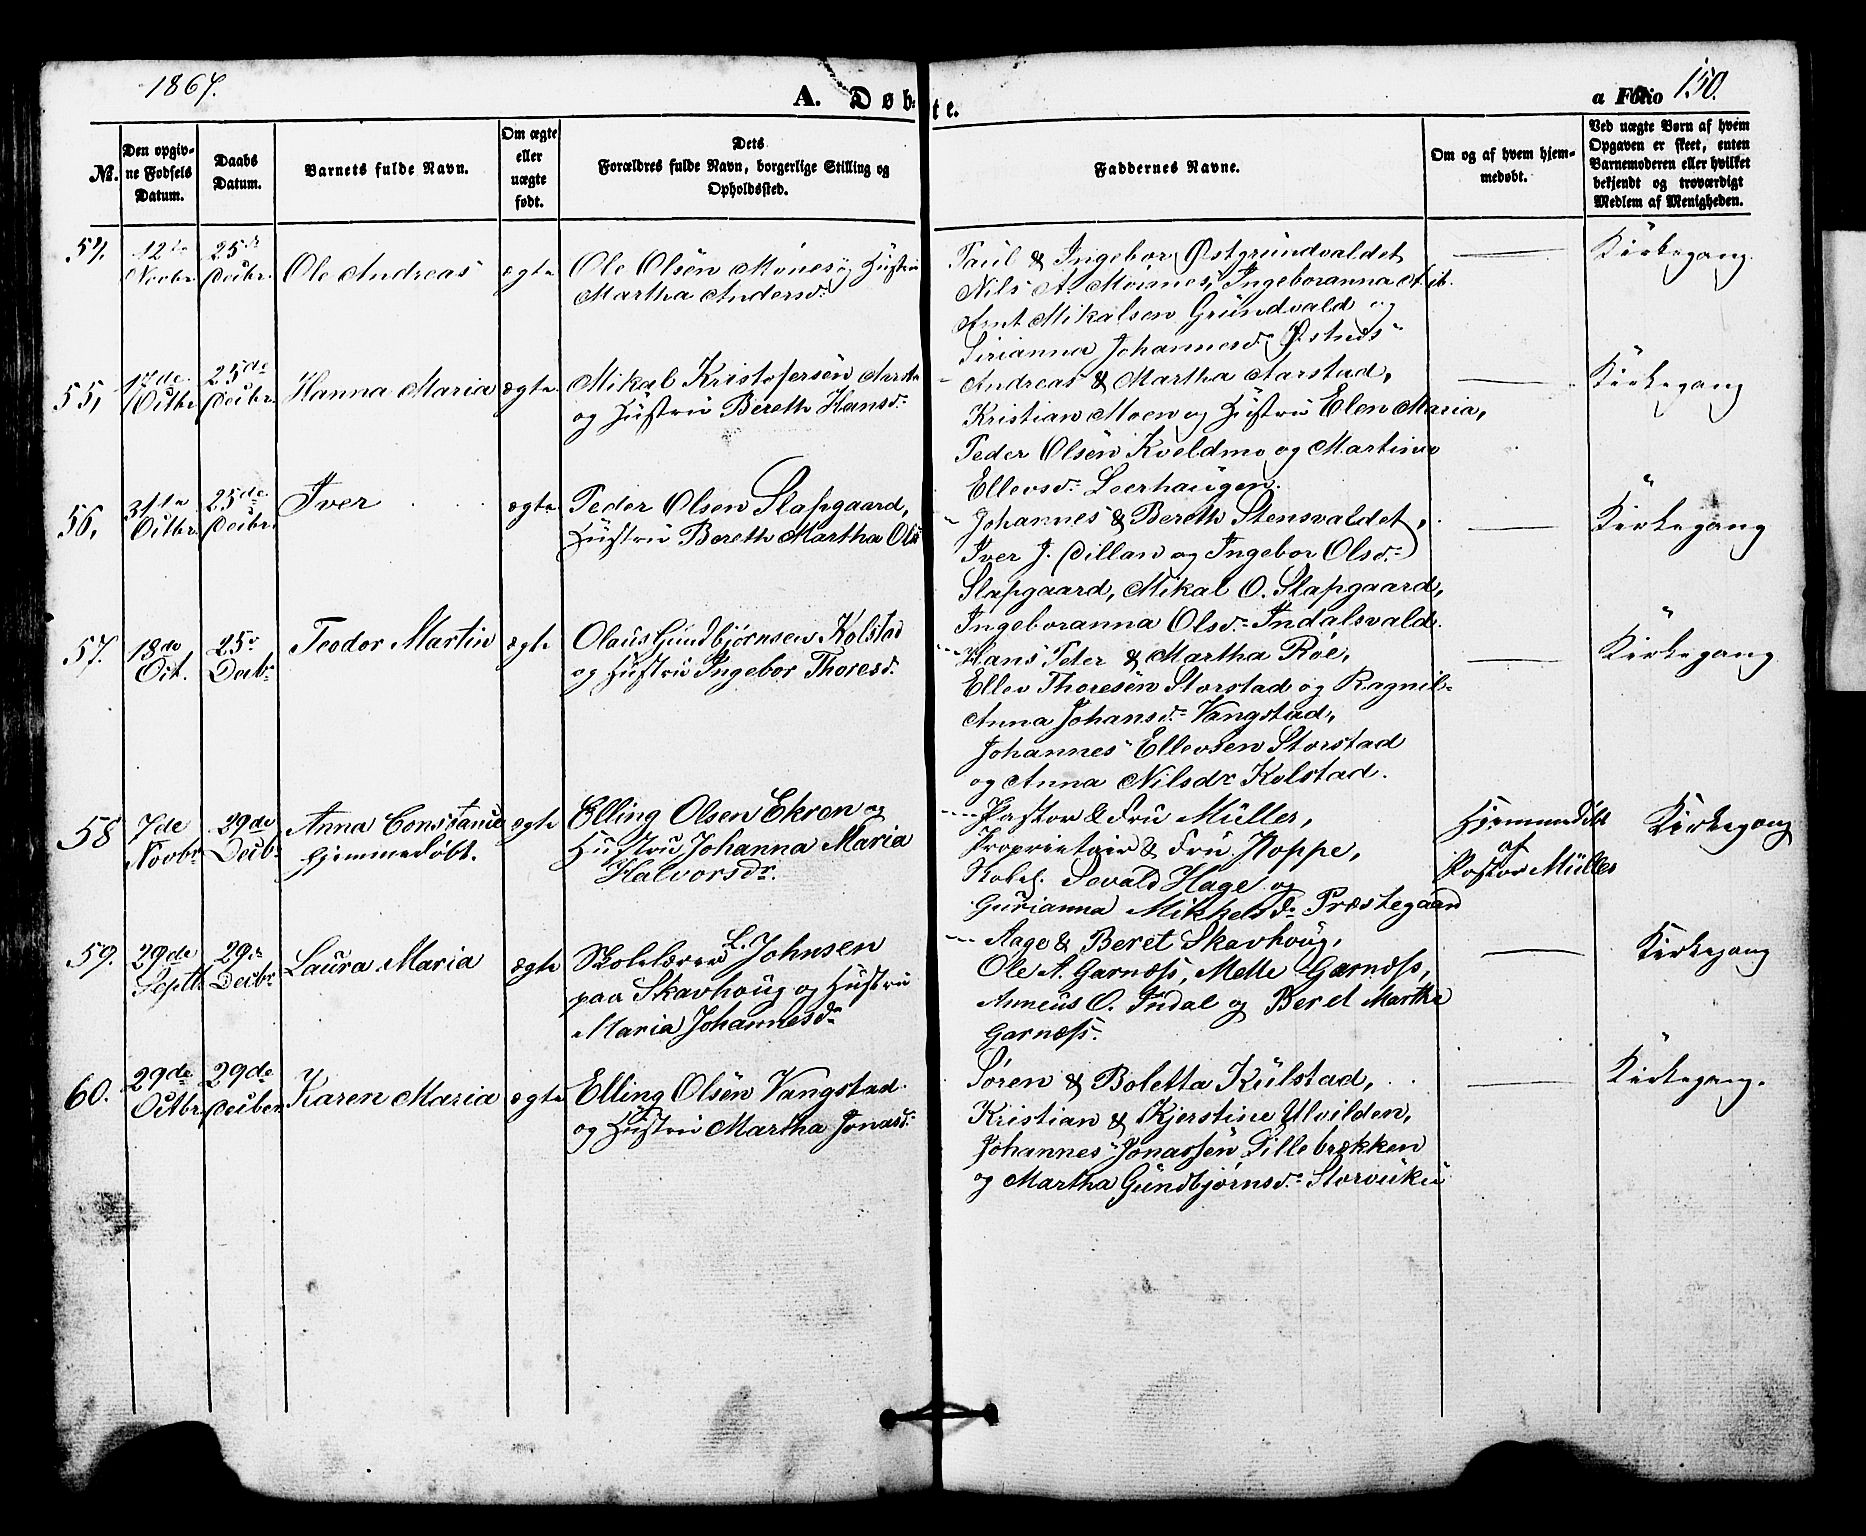 1867.
A. Døb-
te.
a Folio 150.
No.
Den opgiv-
ne Fødsels
Datum.
Daabs
Datum.
Barnets fulde Navn.
Om ægte
eller
uægte
født.
Dets
Forældres fulde Navn, borgerlige Stilling og
Opholdssted.
Faddernes Navne.
Om og af hvem hjem-
medøbt.
Ved uægte Børn af hvem
Opgaven er skeet, enten
Barnemoderen eller hvilket
bekjendt og troværdigt
Medlem af Menigheden.
54.
12te
Novbr.
25de
Decbr.
Ole Andreas
ægte
Ole Olsen Moenes og Hustru
Martha Andersd.
Paul & Ingebor Østgrundvaldet
Nils A. Moenes, Ingeboranna
Arnt Mikalsen Grundvald og
Sirianna Johannesd. Østnes
Kirkegang.
55,
17de
Octbr.
25de
Decbr.
Hanna Maria
ægte
Mikal Kristofersen
og Hustru Bereth Hansd.
Andreas & Martha Aarstad,
Kristian Moen og Hustru Elen Maria,
Peder Olsen Kveldmo og Martine
Ellevsd. Leerhaugen.
Kirkegang
56,
31te
Octbr.
25de
Decbr.
Iver
ægte
Peder Olsen Slapgaard,
Hustru Bereth Martha Ols
Johannes & Bereth Stensvaldet,
Iver J. Dillan og Ingebor Olsd.
Slapgaard, Mikal O. Slapgaard,
Ingeboranna Olsd. Indalsvald.
Kirkegang
57.
18de
Oct.
25de
Decbr.
Teodor Martin
ægte
Olaus Gundbjørnsen Kolstad
og Hustru Ingebor Thoresd.
Hans Peter & Martha Röe,
Ellev Thoresen Storstad og Ragnil-
Anna Johansd. Vangstad,
Johannes Ellevsen Storstad
og Anna Nilsdr Kolstad.
Kirkegang
58
7de
Novbr.
29de
Decbr.
Anna Constance
hjemmedøbt.
ægte
Elling Olsen Ekren og
Hustru Johanna Maria
Halvorsdr.
Pastor & Fru Müller,
Proprietair & Fru Hoppe,
Sevald Hage og
Gurianna Mikkelsdr Præstegaard
Hjemmedöbt
af
Pastor Müller
Kirkegang
59.
29de
Septb.
29de
Decbr.
Laura Maria
ægte
Skolelærer L. Johnsen
paa Skavhoug og Hustru
Maria Johannesdr
Aage & Beret Skavhoug,
Ole A. Garnæss, Mette Garnæss,
Anneus O. Indal og Beret Martha
Garnæss.
Kirkegang
60.
29de
Octbr.
29de
Decber.
Karen Maria
ægte
Elling Olsen Vangstad
og Hustru Martha Jonasd.
Søren & Boletta Kulstad,
Kristian & Kjerstine Ulvilden,
Johannes Jonassen Lillebrækken
og Martha Gundbjørnsd. Storvuku
Kirkegang.